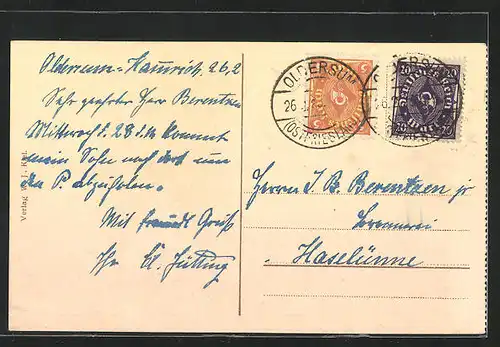 Oldersum-Hauerich, 26.2
Sehr geehrter Herr Berentzen
Mittwoch d. 28. d. M. kommt
mein Sohn nach dort um
den P. abzuholen.
Mit freundl Gruß
Ihr Jütting
Verlag
OLDERSUM
26.
(OSTFRIESLAND)
5 5
Deutsches Reich
20 20
20 20
Herrn J. B. Berentzen jr
Brennerei
Haselünne